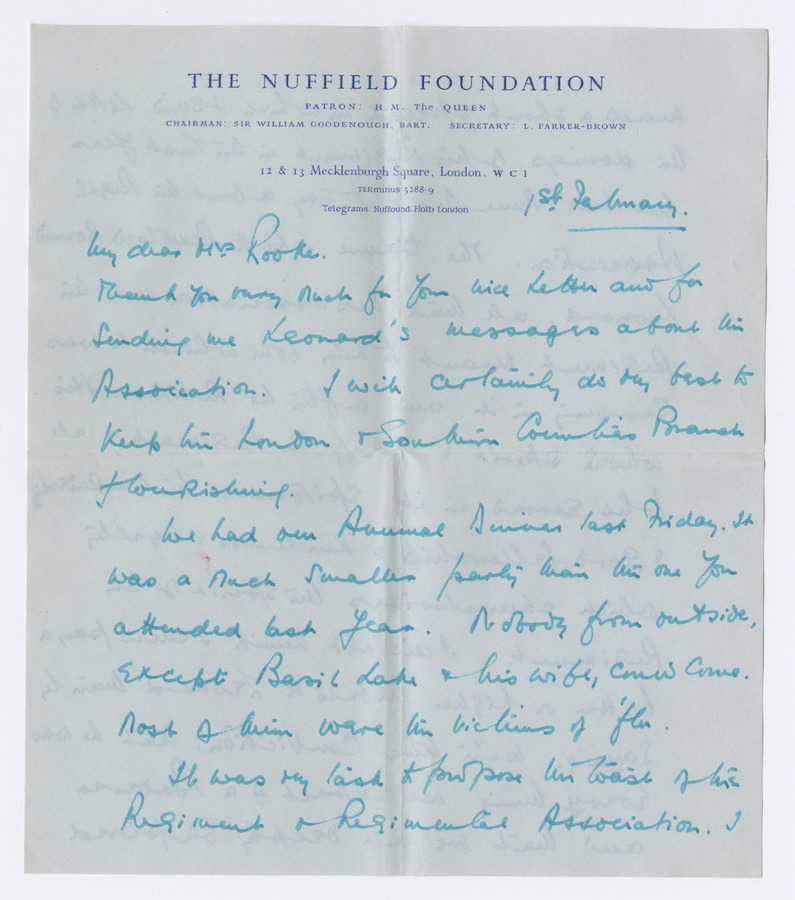 THE NUFFIELD FOUNDATION
PATRON: H.M. The QUEEN
CHAIRMAN: SIR WILLIAM GOODENOUGH, BART. SECRETARY: L. FARRER-BROWN
12 & 13 Mecklenburgh Square, London. W C 1
TERminus 5288-9
Telegrams Nuffound Holb London
1st February.
My dear Mrs Rooke.
Thank you very much for your nice letter and for
sending me Leonard's messages about the
Association. I will certainly do my best to
keep the London & Southern Counties Branch
flourishing.
We had our Annual Dinner last Friday. It
was a much smaller party than the one you
attended last year. Nobody from outside,
except Basil Lake & his wife, could come.
Most of them were the victims of 'flu.
It was my task to propose the toast of the
Regiment & Regimental Association. I